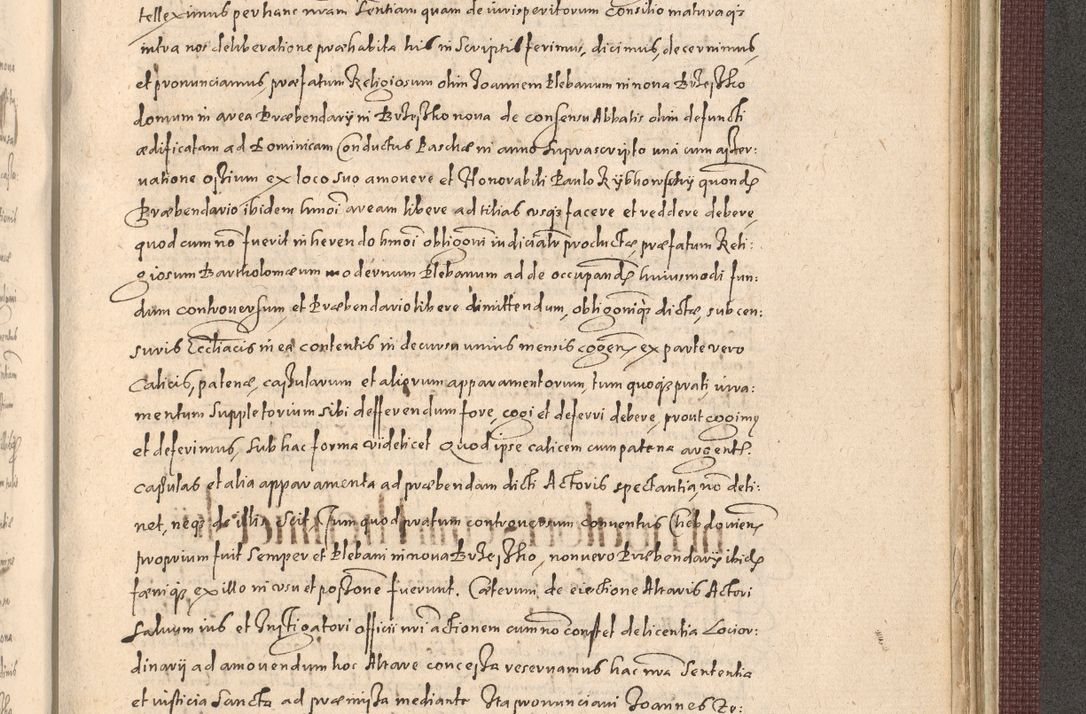 telleximus per hanc nrām Sentiam quam de iurisperitorum consilio maturaq3
intra nos deliberatione præhabita his in Scriptis ferimus, dicimus, decernimus,
et pronunciamus, præfatum Religiosum olim Joannem Plebanum in nova Brzesko
domum in area Præbendarÿ in Brzesko nova de consensu Abbatis olim defuncti
ædificatam ad Dominicam Conductus Paschæ in anno suprascripto una cum
uatione ostium ex loco suo amovere et Honorabili Paulo quond
Præbendario ibidem hmōi aream libere ad tilias usq3 facere et reddere debere,
quod cum nō fuerit inherendo hmōi obligōni iudicialr productæ, præfatum Reli:
giosum Bartholomæum modernum Plebanum ad de occupand huiusmodi fun:
dum controversum, et Præbendario libere dimittendum, obligōniq3 dictæ, sub cen:
suris Eccliacis in ea contentis in decursu unius mensis cogen, ex parte vero
Calicis, patenæ, casularum et aliorum apparamentorum, tum quoq3 prati, iura:
mentum Suppletorium sibi defferendum fore, cogi et deferri debere, prout cogimq
et deferimus, sub hac forma videlicet Quod ipse calicem cum patena argent.
casulas et alia apparamenta ad præbendam dicti Actoris spectantia, nō deti:
net, neq3 de illis scit, Tum quod pratum controversum conventus Chebdovien
proprium fuit semper et Plebani in nova Brzesko, non vero Præbendarÿ ibid
fæniq3 ex illo in usu et possone fuerunt. Cæterum de eiectione Altaris Actori
salvum ius et Instigatori officii nri actionem cum nō constet de licentia Locior:
dinarij ad amovendum hoc Altare concessa reservamus hac nrā Sententia
et iusticia Sancta ad præmissa mediante Ita pronunciavi Joannes